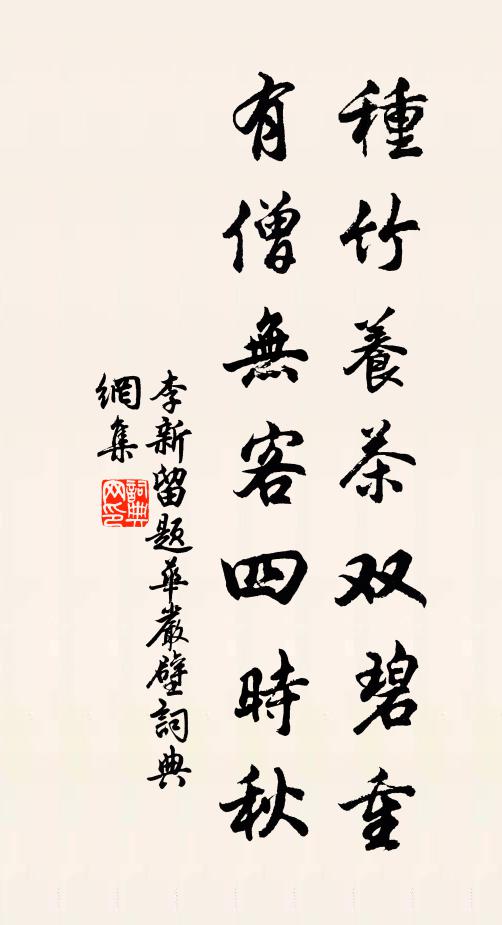 種竹養茶双碧重
有僧無客四時秋
李新留題華嚴壁詞典
網集
詞典
网印